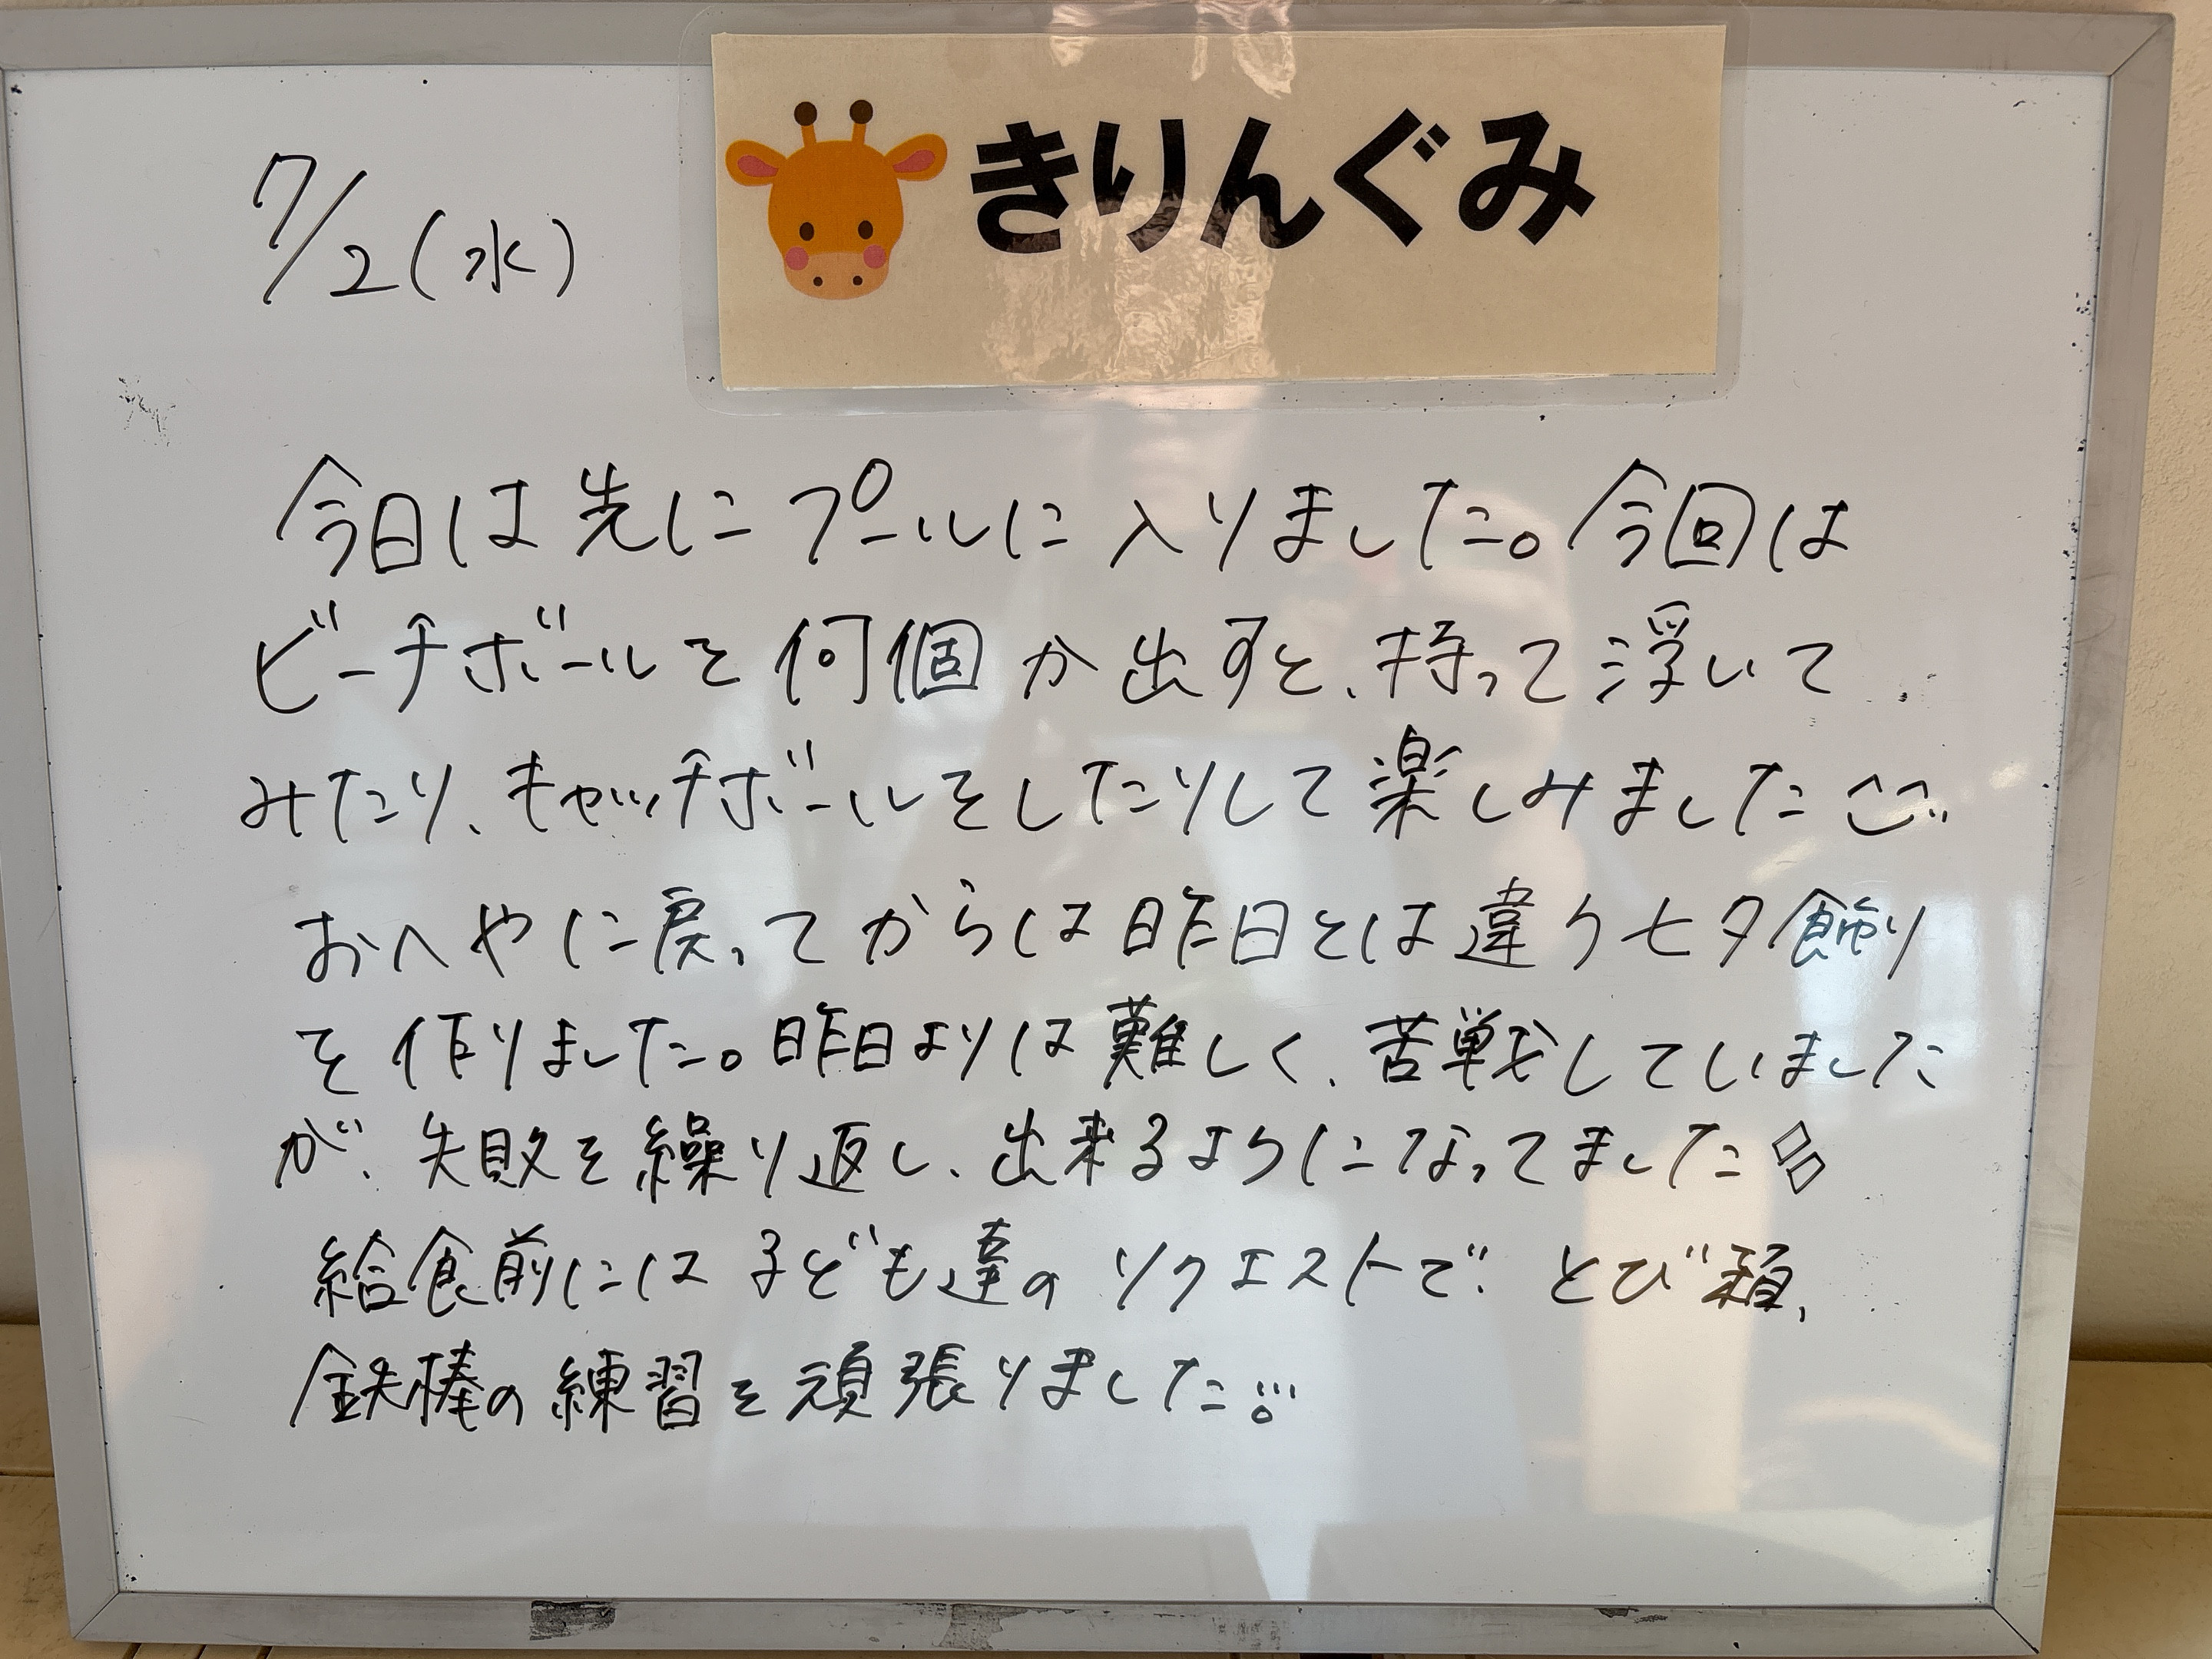 きりんぐみ
7/2(水)
今日は先にプールに入りました。今回は
ビーチボールを何個か出すと、持って浮いて
みたり、キャッチボールをしたりして楽しみました
おへやに戻ってからは昨日とは違う七夕飾り
を作りました。昨日よりは難しく、苦戦していました
が、失敗を繰り返し、出来るようになってました
給食前には子ども達のリクエストで、とび箱、
鉄棒の練習を頑張りました